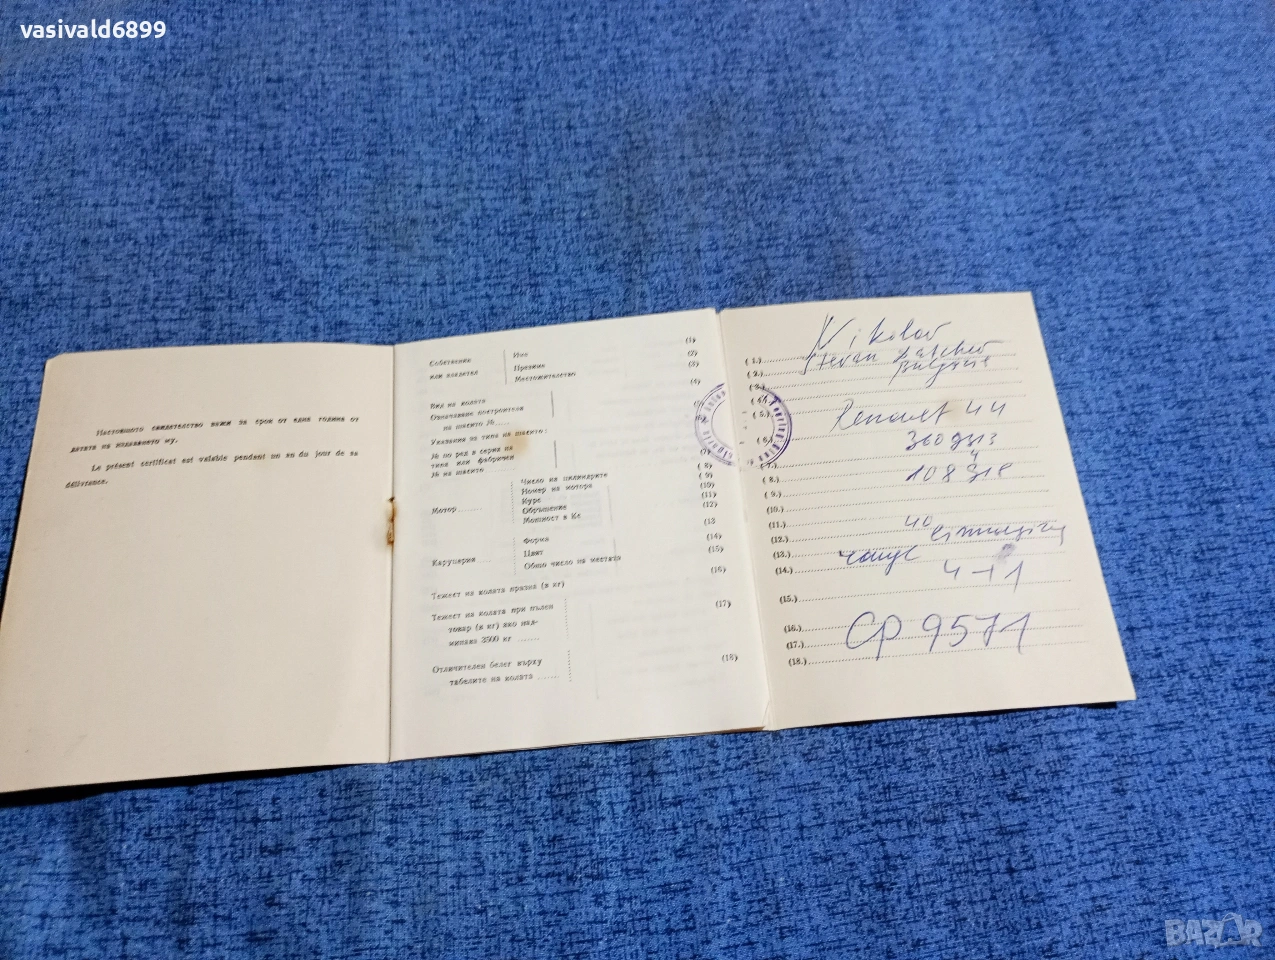 vasivald6899
Настоящото свидетелство важи за срок от една година от
датата на издаването му.
Le présent certificat est valable pendant un an du jour de sa
délivrance.
Собственик
или владетел
Име
Презиме
Местожителство
(1)
(2)
(3)
Вид на колата
(4)
Означаване построителя
на шасито №....
Указания за типа на шасито:
№ по ред в серия на
типа или фабричен
№ на шасито
Мотор
Число на цилиндрите
Номер на мотора
Курс
Обръщение
Мощност в Кс
(8)
(9)
(10)
(11)
(12)
Каруцерия
Форма
Цвят
Общо число на местата
(13
(14)
(15)
Тежест на колата празна (в кг)
(16)
Тежест на колата при пълен
товар (в кг) ако над-
минава 3500 кг ......
(17)
Отличителен белег върху
табелите на колата ......
(18)
Nikolov
(1.) Stevan
(2.) Bulgarie
(3.)
(4.)
(5.) Renault 4 4
(6.)
(7.)
(8.)
(9.)
(10.)
(11.)
(12.) 40
(13.)
(14.) rouge
4-1
(15.)
(16.)
(17.) СР 9571
(18.)
BAZAR